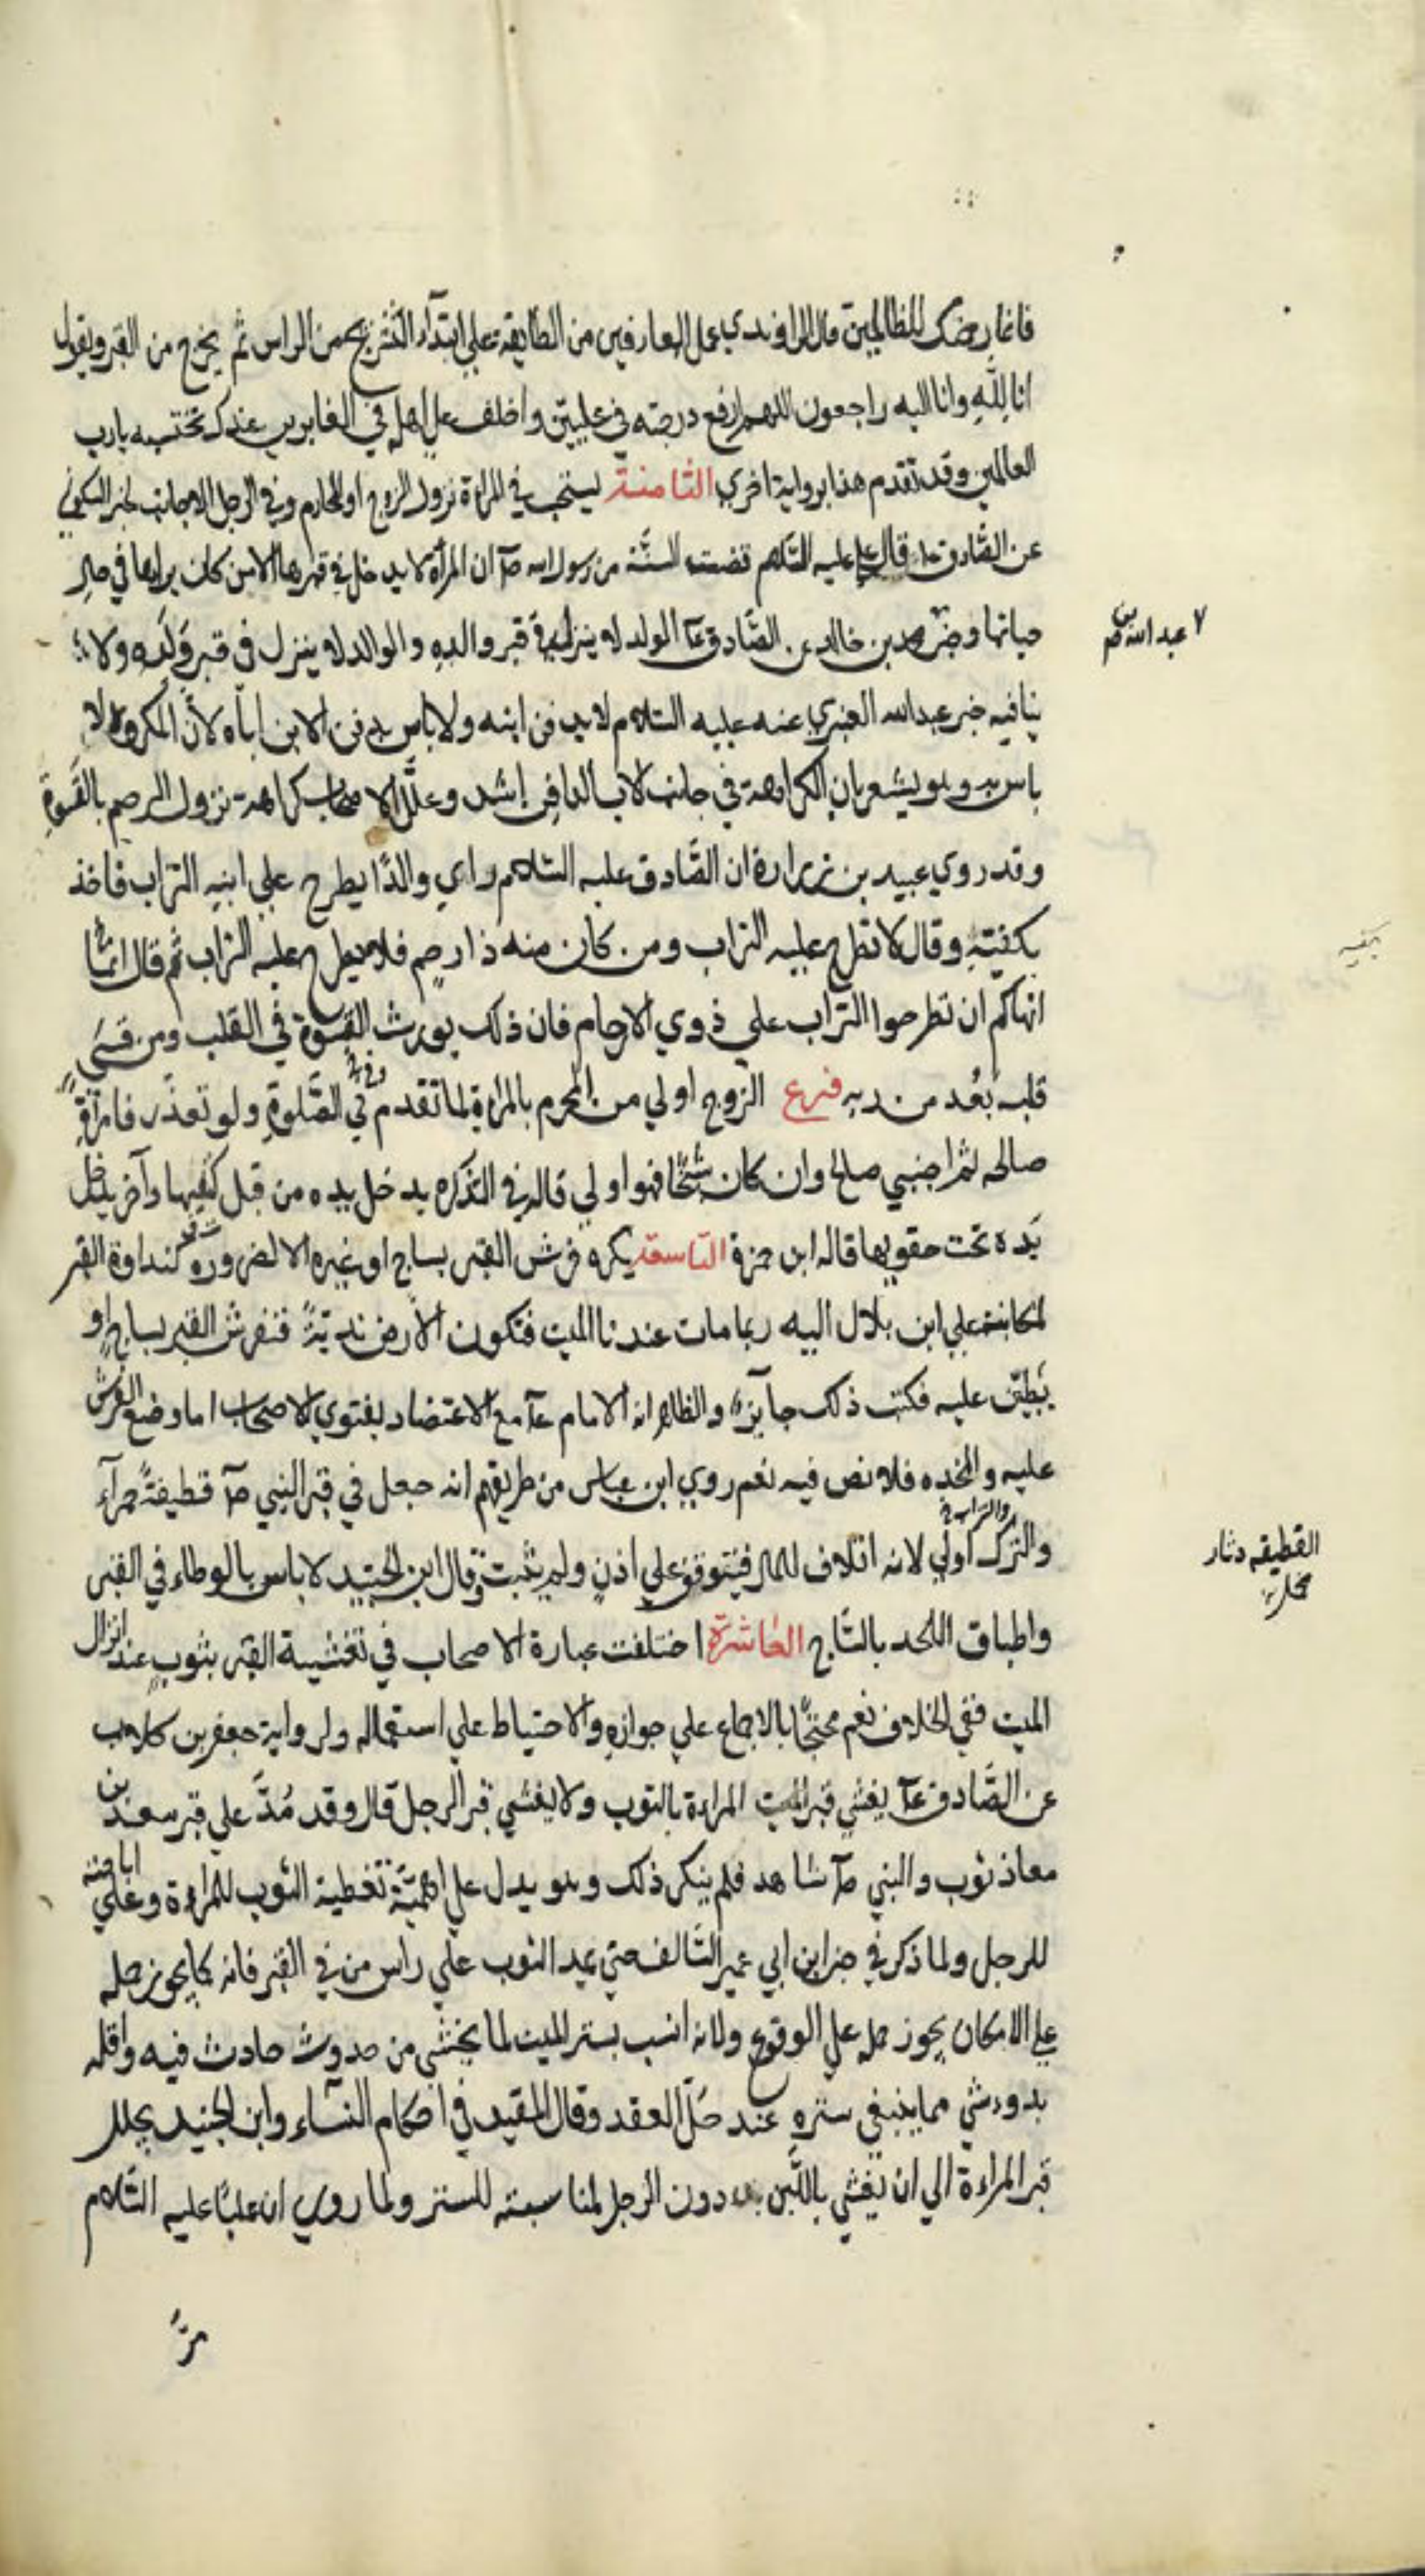 فاغما رضك للظالمين قال الراوندي عمل العارفين من الطايفه على ابتداء التشريج من الراس ثم يخرج من القبر ويقول
انا لله وانا اليه راجعون اللهم ارفع درجته في عليين واخلف على اهله في الغابرين عندك تحتسبه يا رب
العالمين وقد تقدم هذا برواية اخري الثامنة يستحب في المراءة نزول الزوج او المحارم وفي الرجل الاجانب لخبر السكوني
عن الصادق ع قال علي عليه السلام مضت السنة من رسول الله ص ان المرأة لا يدخل في قبرها الا من كان يراها في حال
حياتها وخبر محمد بن خالد عن الصادق ع الولد لا ينزل في قبر والده والوالد لا ينزل في قبر ولده ولا
عبد الله بن
ينافيه خبر عبد الله العنبري عنه عليه السلام لا يدفن ابنه ولا باس بدفن الابن اباه لأن المكروه لا
باس به وهو يشعر بان الكراهة في جانب الاب الدافن اشد وعلل الاصحاب كراهة نزول الرحم بالقسوة
وقد روي عبيد بن زرارة ان الصادق عليه السلام راي والدًا يطرح على ابنه التراب فاخذ
بكفيته وقال لا تطرح عليه التراب ومن كان منه ذا رحم فلا يطرح عليه التراب ثم قال انما
انهاكم ان تطرحوا التراب علي ذوي الارحام فان ذلك يورث القسوة في القلب ومن قسي
قلبه بعد من ربه فرع الزوج اولي من المحرم بالمراة لما تقدم في الصلوة ولو تعذر فامراة
صالحه ثم اجنبي صالح وان كان شيخًا فهو اولي قاله في التذكره يدخل يده من قبل كتفيها وآخر يدخل
يده تحت حقويها قاله ابن حمزة التاسعة يكره فرش القبر بساج او غيره الا لضرورة كنداوة القبر
لمكاتبة علي ابن بلال اليه ربما مات عندنا الميت فتكون الأرض ندية فنفرش القبر بساج او
يطبق عليه فكتب ذلك جايز والظاهر انه الامام ع مع الاعتضاد بفتوي الاصحاب اما وضع الفرش
عليه والمخده فلا نص فيه نعم روي ابن عباس من طريقهم انه جعل في قبر النبي ص قطيفة حمرآء
والترك اولي لانه اتلاف للمال فيتوقف علي اذن ولم يثبت وقال ابن الجنيد لا باس بالوطاء في القبر
القطيفه دثار
مخمل
واطباق اللحد بالساج العاشرة اختلفت عبارة الاصحاب في تغشية القبر بثوب عند انزال
الميت ففي الخلاف نعم محتجًا بالاجماع علي جوازه والاحتياط علي استعماله ولرواية جعفر بن كلاب
عن الصادق ع يغشي قبر المراءة بالثوب ولا يغشي قبر الرجل قال وقد مُدّ علي قبر سعد بن
معاذ ثوب والنبي ص شاهد فلم ينكر ذلك وهو يدل علي اهمية تغطية الثوب للمراءة وعلي اباحته
للرجل ولما ذكر في خبر ابن ابي عمير السالف حتي يمد الثوب علي راس من في القبر فانه كما يجوز حمله
علي الامكان يجوز حمله علي الوقوع ولانه انسب بستر الميت لما يخشي من حدوث حادث فيه واقله
بدو شي مما ينبغي ستره عند حلّ العقد وقال المفيد في احكام النساء وابن الجنيد يجلل
قبر المراءة الي ان يغشي باللّبن دون الرجل لمناسبته للستر ولما روي ان عليًا عليه السلام
مرّ